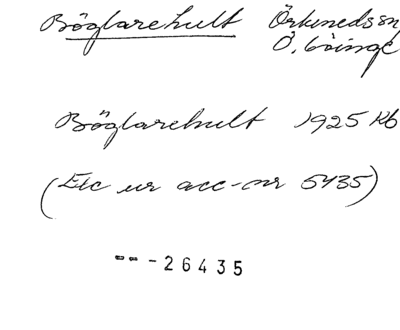 Böglarehult Örkenedssn
Ö. Göinge
Böglarehult 1925 Kb
(Exc ur acc-nr 5435)
---26435